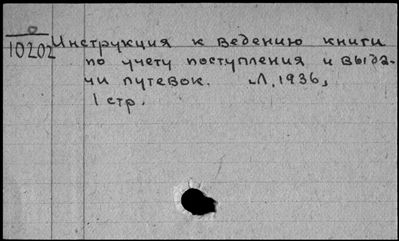 0
10202 Инструкция к ведению книги
по учету поступления и выда-
чи путевок. Л, 1936,
1 стр.